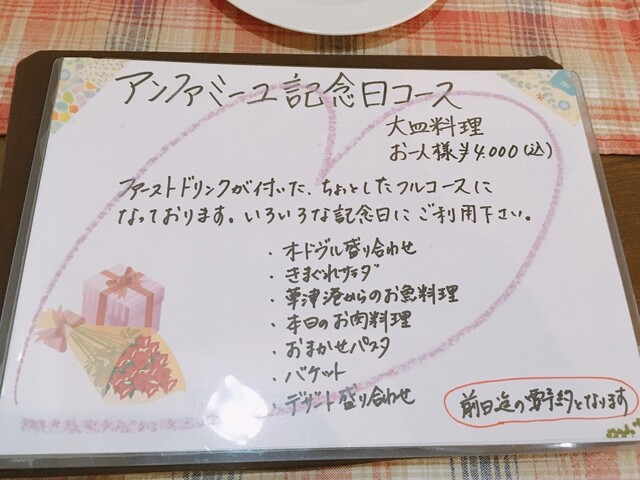 アンファミーユ記念日コース
大皿料理
お一人様¥4,000(込)
ファーストドリンクが付いた、ちょっとしたフルコースに
なっております。いろいろな記念日にご利用下さい。
・オードヴル盛り合わせ
・きまぐれサラダ
・草津港からのお魚料理
・本日のお肉料理
・おまかせパスタ
・バケット
・デザート盛り合わせ
前日迄の要予約となります